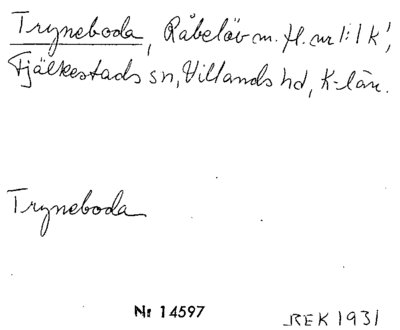 Tryneboda, Råbelöv m. fl. nr 1:1 k',
Fjälkestads sn, Villands hd, K-län.
Tryneboda
Nr 14597
REK 1931